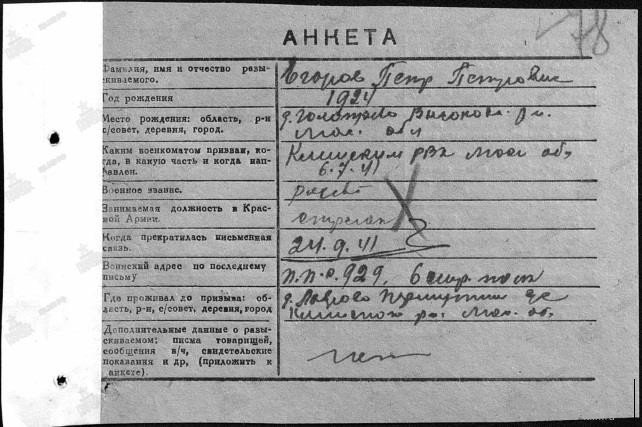 78
АНКЕТА
Фамилия, имя и отчество разы-
скиваемого.
Егоров Петр Петрович
Год рождения
1924
Место рождения: область, р-н
с/совет, деревня, город.
д. Высоковс. р-н.
Мос. обл
Каким военкоматом призван, ко-
гда, в какую часть и когда нап-
равлен.
Клинским РВК Моск об,
6.7.41
Военное звание.
рядов
Занимаемая должность в Крас-
ной Армии.
стрелок
Когда прекратилась письменная
связь.
24.9.41
Воинский адрес по последнему
письму
п.п.с. 929.
Где проживал до призыва: об-
ласть, р-н, с/совет, деревня, город
д. Лаврово
Клинского р-н Мос. об,
Дополнительные данные о разы-
скиваемом: письма товарищей,
сообщения в/ч, свидетельские
показания и др, (приложить к
анкете).
нет